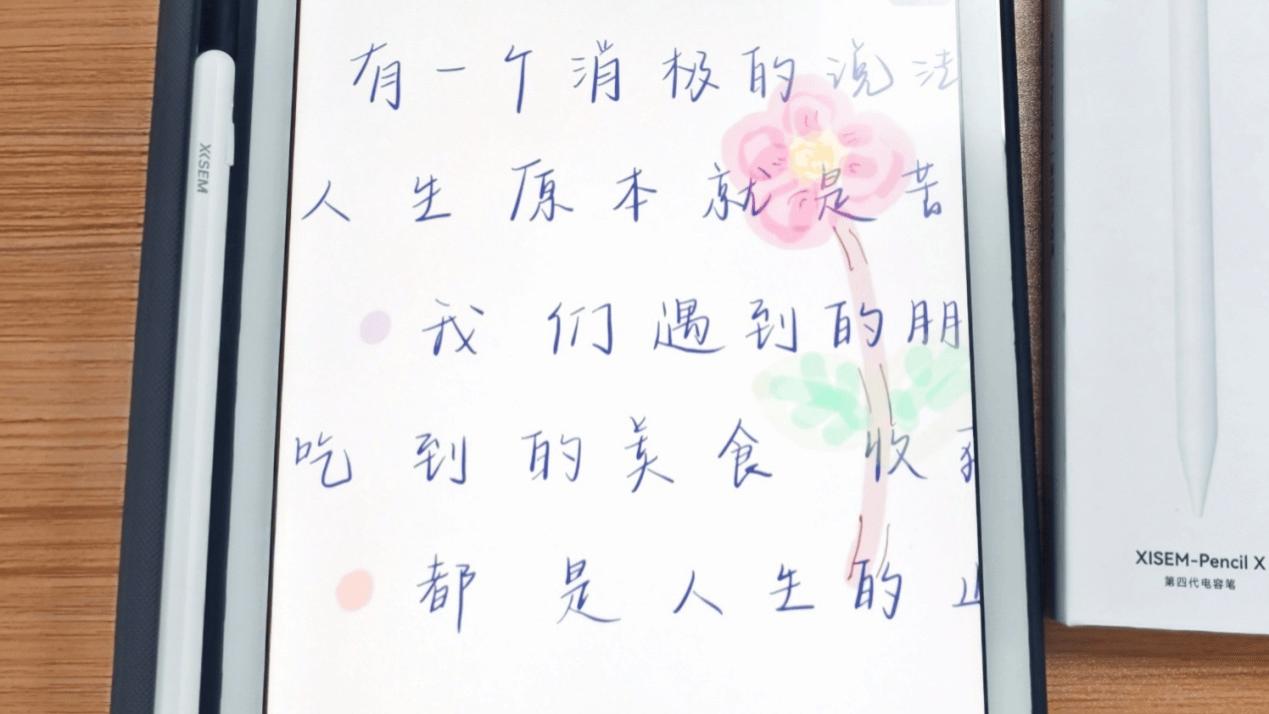 有一个消极的说法
人生原本就是苦
我们遇到的朋
吃到的美食 收到
都是人生的
XISEM
XISEM-Pencil X
第四代电容笔